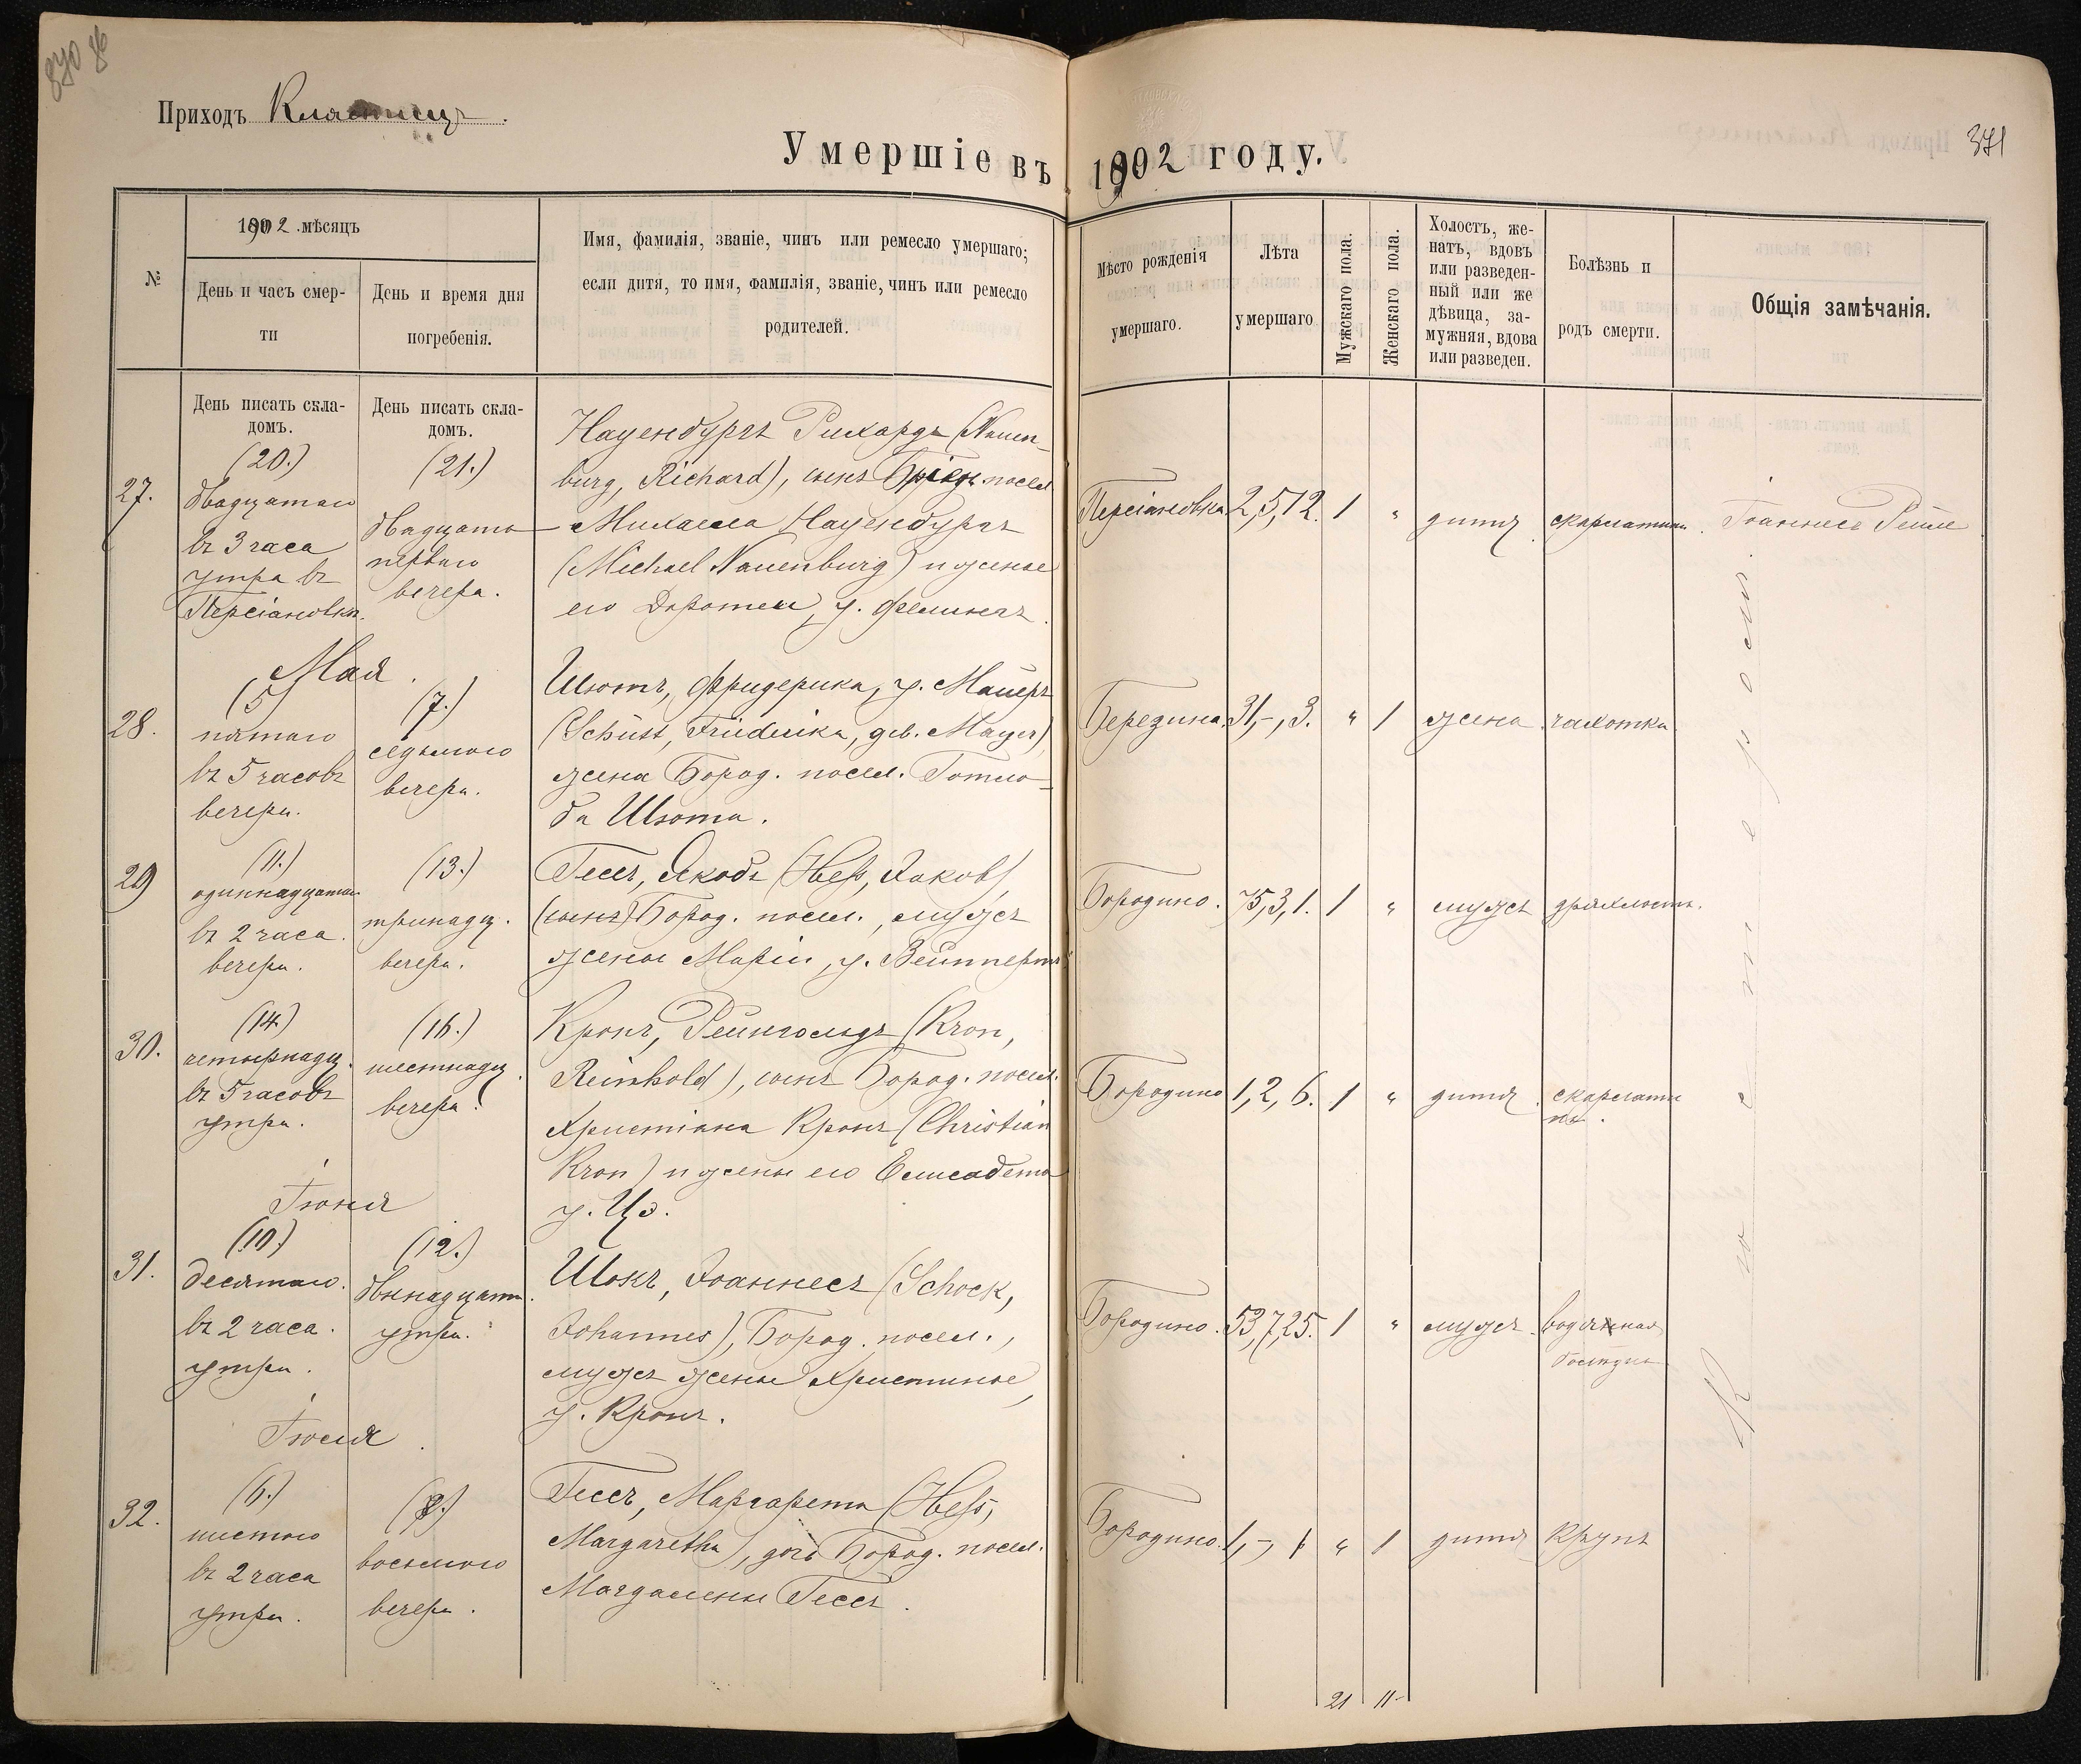 370 об
Приходъ Клястицъ.
Умершіе въ 1902 году.
371
№
1902 мѣсяцъ
День и часъ смер-
ти
День и время дня
погребенія.
Имя, фамилія, званіе, чинъ или ремесло умершаго;
если дитя, то имя, фамилія, званіе, чинъ или ремесло
родителей.
Мѣсто рожденія
умершаго.
Лѣта
умершаго
Мужскаго пола.
Женскаго пола.
Холостъ, же-
натъ, вдовъ
или разведен-
ный или же
дѣвица, за-
мужняя, вдова
или разведен.
Болѣзнь и
родъ смерти.
Общія замѣчанія.
День писать скла-
домъ.
День писать скла-
домъ.
27.
(20.)
двадцатаго
въ 3 часа
утра въ
Персіановкѣ.
(21.)
двадцать
перваго
вечера.
Науенбургъ Рихардъ (Nauen-
burg, Richard), сынъ посел.
Михаила Науенбургъ
(Michael Nauenburg) и жены
его Доротеи, у.
Персіановка
2, 5, 12.
1
"
дитя
скарлатина.
Іоаннесъ
Мая.
28.
(5)
пятаго
въ 5 часовъ
вечера.
(7.)
седьмого
вечера.
Шютъ, Фридерика, у. Майеръ
(Schütt, Friederika, geb. Mayer)
жена Бород. посел. Готло-
ба Шюта.
Березина.
31, -, 3.
"
1
жена
чахотка
29
(11.)
одиннадцатаго
въ 2 часа.
вечера.
(13.)
тринадц.
вечера.
Гессъ, Якобъ (Heß, Jakob),
(сынъ) Бород. посел., мужъ
жены Маріи, у. Вейппертъ
Бородино.
75, 3, 1.
1
"
мужъ
дряхлость.
30.
(14.)
четырнадц.
въ 5 часовъ
утра.
(16.)
шестнадц.
вечера.
Кронъ, Рейнгольдъ (Kron,
Reinhold), сынъ Бород. посел.
Христіана Кронъ (Christian
Kron) и жены его Елисабета
у. Цо.
Бородино
1, 2, 6.
1
"
дитя
скарлати
на.
Іюня
31.
(10.)
десятаго.
въ 2 часа.
утра.
(12.)
двѣнадцат.
утра.
Шокъ, Іоаннесъ (Schock,
Johannes), Бород. посел.,
мужъ жены Христины,
у. Кронъ.
Бородино.
53, 7, 25.
1
"
мужъ.
водяная
болѣзнь
Іюля.
32.
(6.)
шестого
въ 2 часа
утра.
(8.)
восьмого
вечера.
Гессъ, Маргарета (Heß,
Margaretha), дочь Бород. посел.
Магдалены Гессъ.
Бородино.
1, -, 1
"
1
дитя
крупъ
21
11